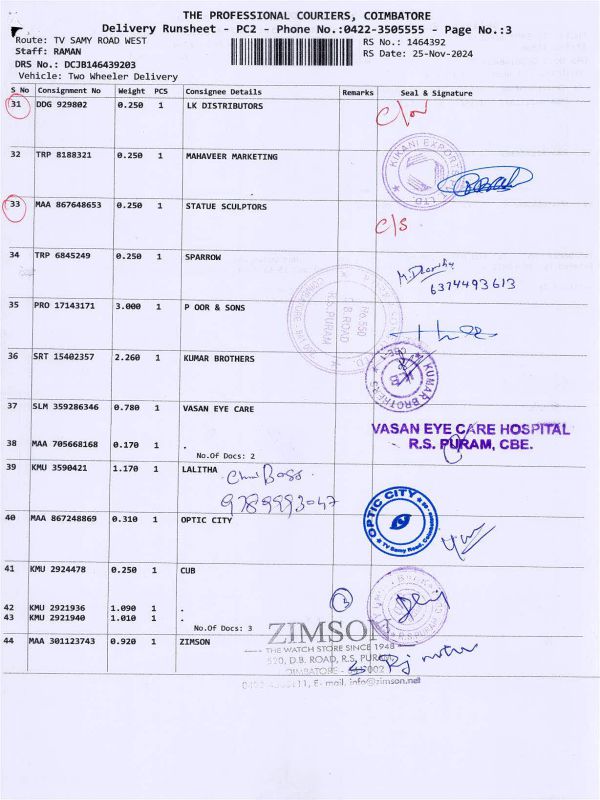 THE PROFESSIONAL COURIERS, COIMBATORE
Delivery Runsheet - PC2 - Phone No.:0422-3505555 - Page No.:3
Route: TV SAMY ROAD WEST
RS No.: 1464392
Staff: RAMAN
RS Date: 25-Nov-2024
DRS No.: DCJB146439203
Vehicle: Two Wheeler Delivery
S No Consignment No Weight PCS Consignee Details Remarks Seal & Signature
31 DDG 929802 0.250 1 LK DISTRIBUTORS
32 TRP 8188321 0.250 1 MAHAVEER MARKETING
KIKANI EXPORTS LTD.
33 MAA 867648653 0.250 1 STATUE SCULPTORS
C/S
34 TRP 6845249 0.250 1 SPARROW
6374493613
35 PRO 17143171 3.000 1 P OOR & SONS
R.S. PURAM
36 SRT 15402357 2.260 1 KUMAR BROTHERS
KUMAR BROTHERS
37 SLM 359286346 0.780 1 VASAN EYE CARE
VASAN EYE CARE HOSPITAL
R.S. PURAM, CBE.
38 MAA 705668168 0.170 1 .
No.Of Docs: 2
39 KMU 3590421 1.170 1 LALITHA
9789993047
40 MAA 867248869 0.310 1 OPTIC CITY
OPTIC CITY
TV Samy Road, Coimbatore
41 KMU 2924478 0.250 1 CUB
42 KMU 2921936 1.090 1 .
43 KMU 2921940 1.010 1 .
No.Of Docs: 3
R.S.PURAM
44 MAA 301123743 0.920 1 ZIMSON
ZIMSON
THE WATCH STORE SINCE 1948
520, D.B. ROAD, R.S. PURAM
E-mail. info@zimson.net